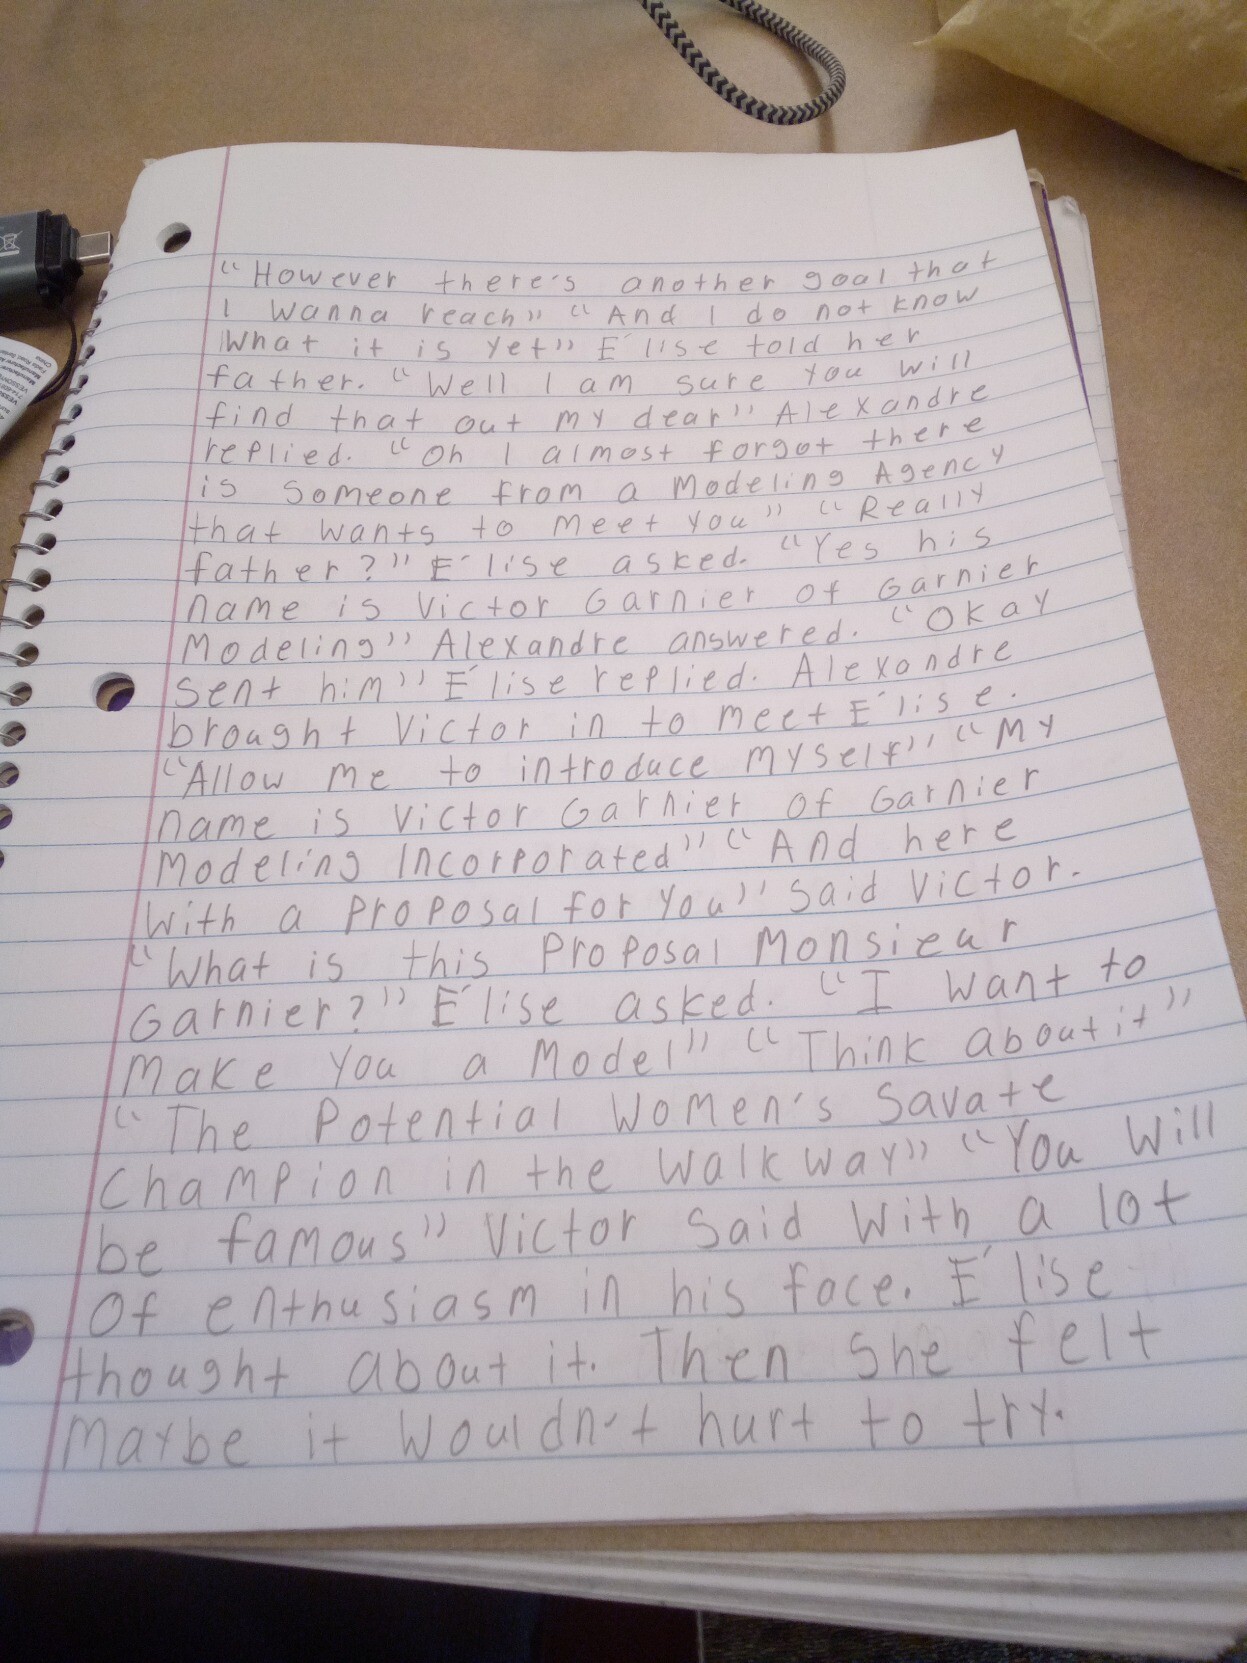 “However there's another goal that
I wanna reach” “And I do not know
What it is yet” É lise told her
father. “Well I am sure you will
find that out my dear” Alexandre
replied. “Oh I almost forgot there
is someone from a Modeling Agency
that wants to meet you” “Really
father?” É lise asked. “Yes his
name is Victor Garnier of Garnier
Modeling” Alexandre answered. “Okay
sent him” É lise replied. Alexandre
brought Victor in to meet É lise.
“Allow me to introduce myself” “My
name is Victor Garnier of Garnier
Modeling Incorporated” “And here
with a proposal for you” said Victor.
“What is this proposal Monsieur
Garnier?” É lise asked. “I want to
make you a Model” “Think about it”
“The Potential Women's Savate
Champion in the walkway” “You will
be famous” Victor said with a lot
of enthusiasm in his face. É lise
thought about it. Then she felt
maybe it wouldn't hurt to try.